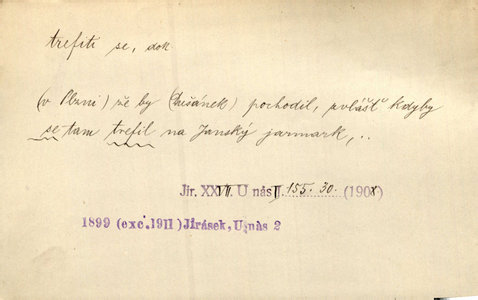 trefiti se, dok
(v Plzni) že by (Dušánek) pochodil, zvlášť kdyby
se tam trefil na Janský jarmark, ..
Jir. XXVII. U nás II. 155. 30. (1908)
1899 (exc. 1911) Jirásek, U nás 2